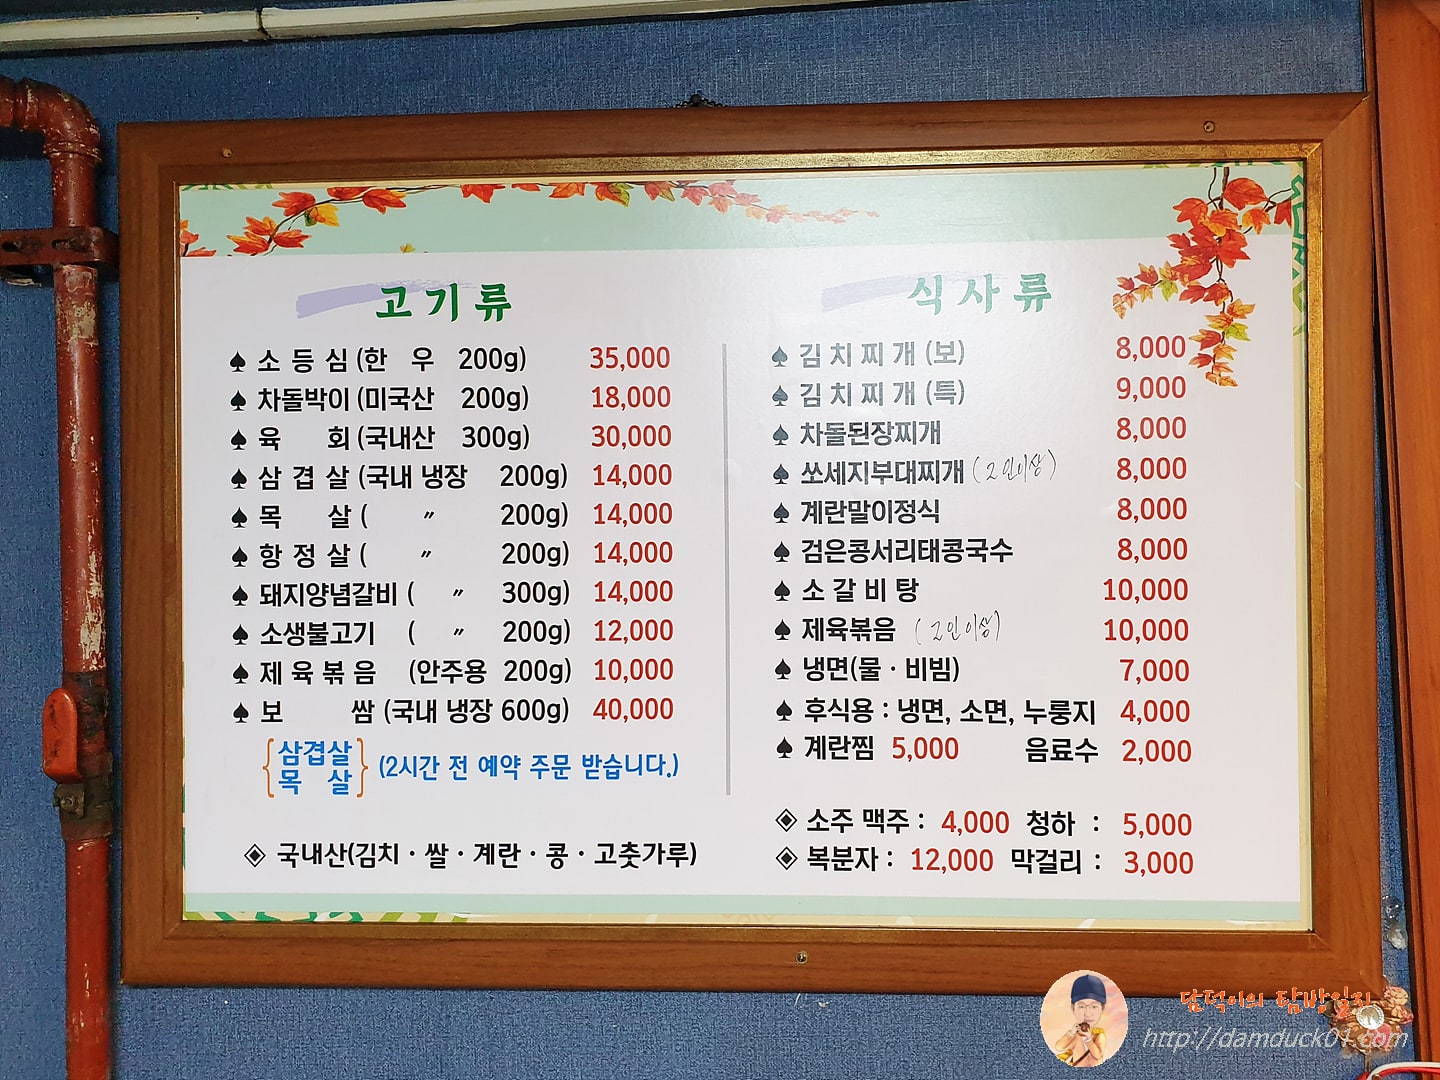 고기류
♠ 소 등 심 (한 우 200g) 35,000
♠ 차돌박이 (미국산 200g) 18,000
♠ 육 회 (국내산 300g) 30,000
♠ 삼 겹 살 (국내 냉장 200g) 14,000
♠ 목 살 ( 〃 200g) 14,000
♠ 항 정 살 ( 〃 200g) 14,000
♠ 돼지양념갈비 ( 〃 300g) 14,000
♠ 소생불고기 ( 〃 200g) 12,000
♠ 제 육 볶 음 (안주용 200g) 10,000
♠ 보 쌈 (국내 냉장 600g) 40,000
{삼겹살 목 살} (2시간 전 예약 주문 받습니다.)
◈ 국내산(김치 · 쌀 · 계란 · 콩 · 고춧가루)
식사류
♠ 김 치 찌 개 (보) 8,000
♠ 김 치 찌 개 (특) 9,000
♠ 차돌된장찌개 8,000
♠ 쏘세지부대찌개 (2인이상) 8,000
♠ 계란말이정식 8,000
♠ 검은콩서리태콩국수 8,000
♠ 소 갈 비 탕 10,000
♠ 제육볶음 (2인이상) 10,000
♠ 냉면(물 · 비빔) 7,000
♠ 후식용 : 냉면, 소면, 누룽지 4,000
♠ 계란찜 5,000 음료수 2,000
◈ 소주 맥주 : 4,000 청하 : 5,000
◈ 복분자 : 12,000 막걸리 : 3,000
담덕이의 탐방일지
http://damduck01.com